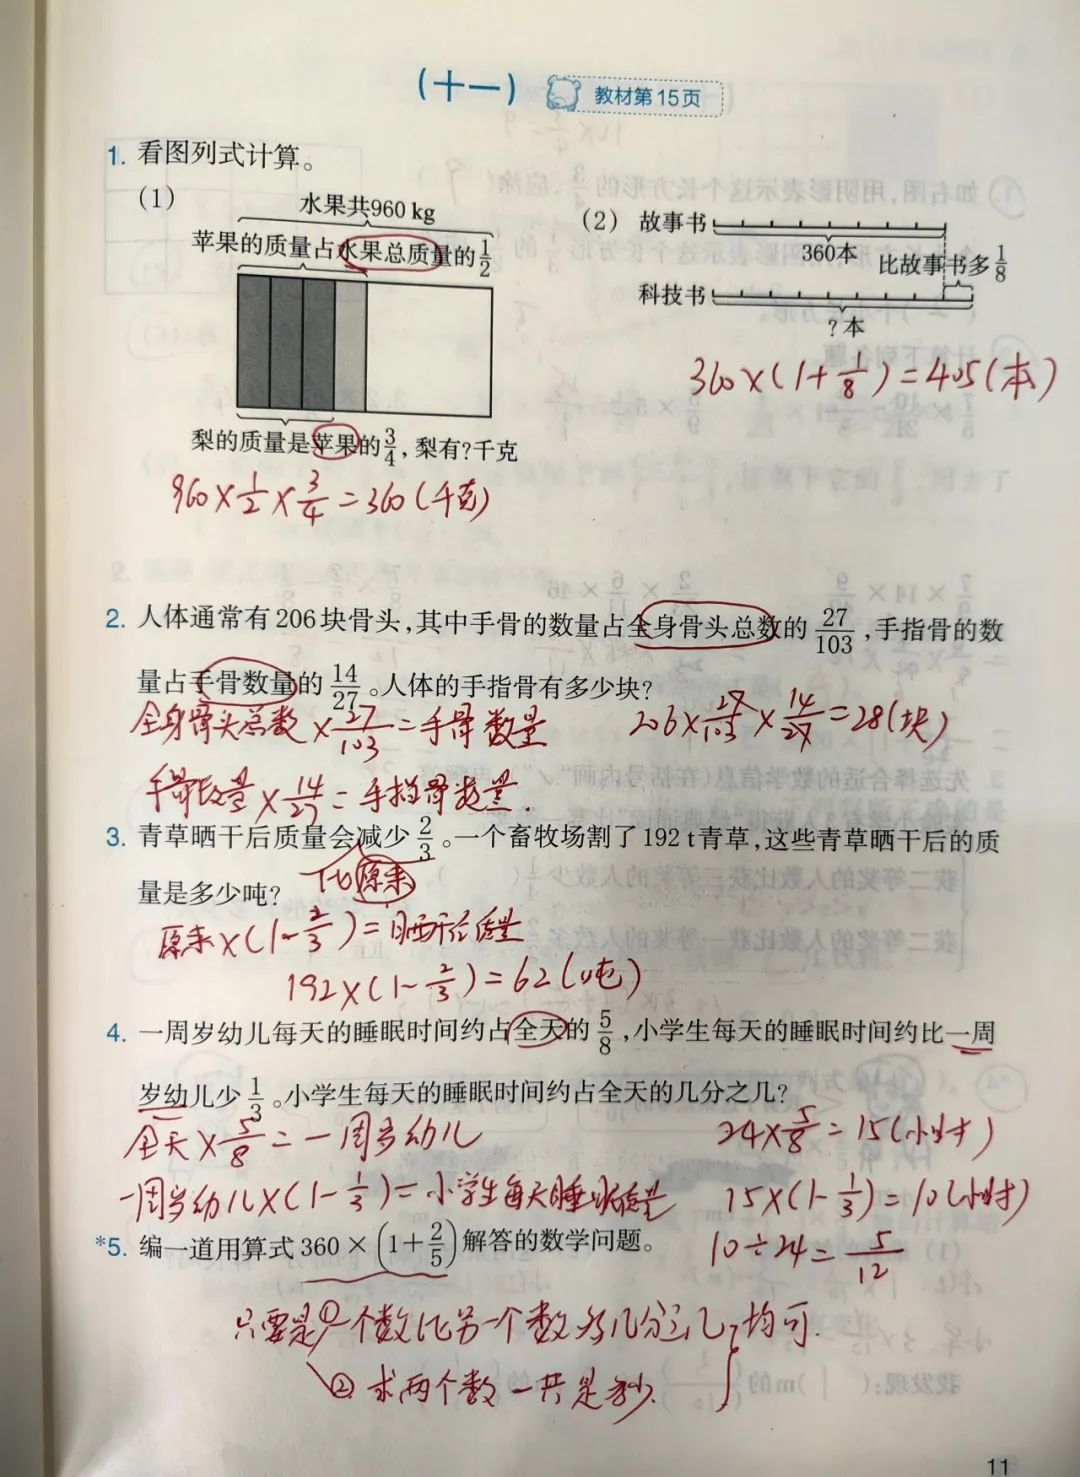 (十一) 教材第15页
1. 看图列式计算。
(1)
水果共960 kg
苹果的质量占水果总质量的1/2
梨的质量是苹果的3/4,梨有?千克
960×1/2×3/4=360(千克)
(2) 故事书
360本
比故事书多1/8
科技书
?本
360×(1+1/8)=405(本)
2. 人体通常有206块骨头,其中手骨的数量占全身骨头总数的27/103,手指骨的数
量占手骨数量的14/27。人体的手指骨有多少块?
全身骨头总数×27/103=手骨数量
206×27/103×14/27=28(块)
手骨数量×14/27=手指骨数量.
3. 青草晒干后质量会减少2/3。一个畜牧场割了192 t青草,这些青草晒干后的质
比原来
量是多少吨?
原来×(1-2/3)=晒干后质量
192×(1-2/3)=62(吨)
4. 一周岁幼儿每天的睡眠时间约占全天的5/8,小学生每天的睡眠时间约比一周
岁幼儿少1/3。小学生每天的睡眠时间约占全天的几分之几?
全天×5/8=一周岁幼儿
24×5/8=15(小时)
一周岁幼儿×(1-1/3)=小学生每天睡眠
15×(1-1/3)=10(小时)
10÷24=5/12
*5. 编一道用算式360×(1+2/5)解答的数学问题。
只要是①一个数比另一个数多几分之几,均可.
②求两个数一共是多少.
11